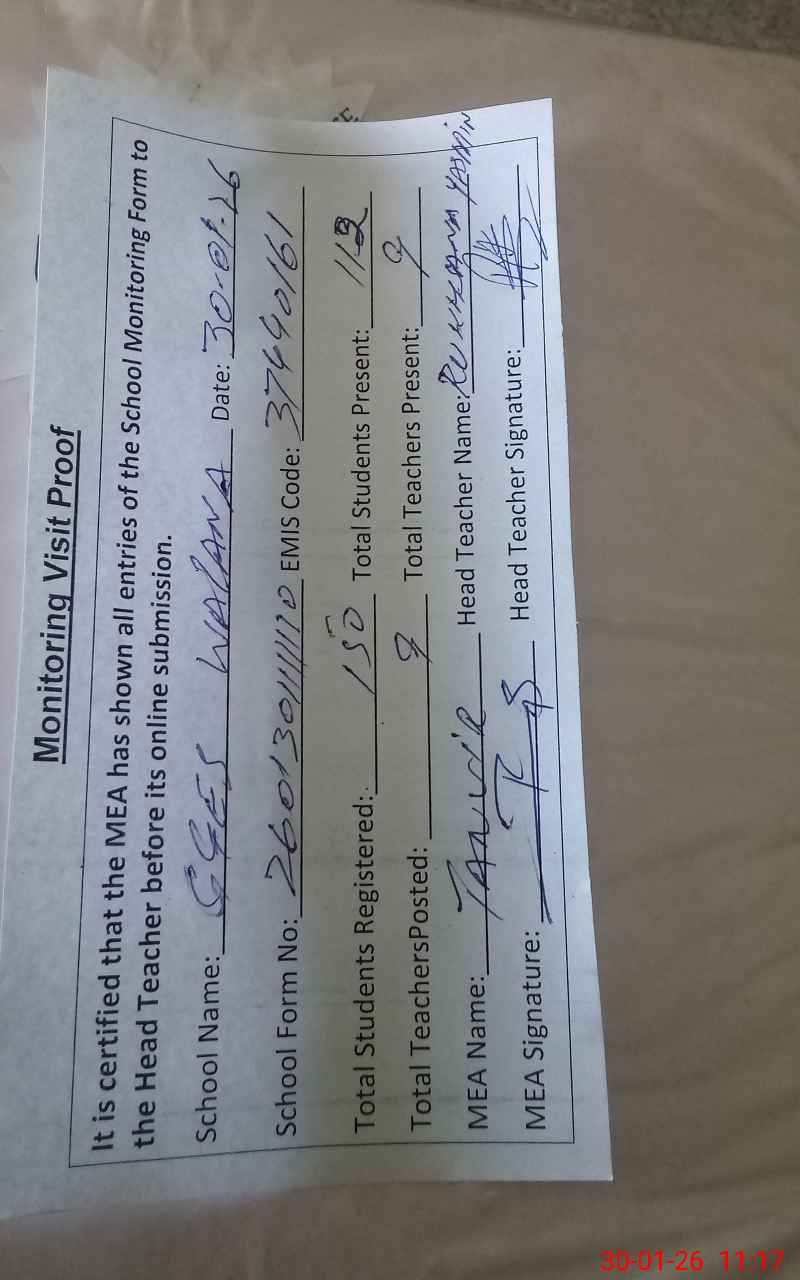 Monitoring Visit Proof
It is certified that the MEA has shown all entries of the School Monitoring Form to
the Head Teacher before its online submission.
School Name: GGES WALANA Date: 30-01-26
School Form No: EMIS Code: 37440161
Total Students Registered: 150 Total Students Present: 112
Total TeachersPosted: 9 Total Teachers Present: 9
MEA Name: TANVIR Head Teacher Name: RUKHSANA YASMIN
MEA Signature: Head Teacher Signature:
30-01-26 11:17